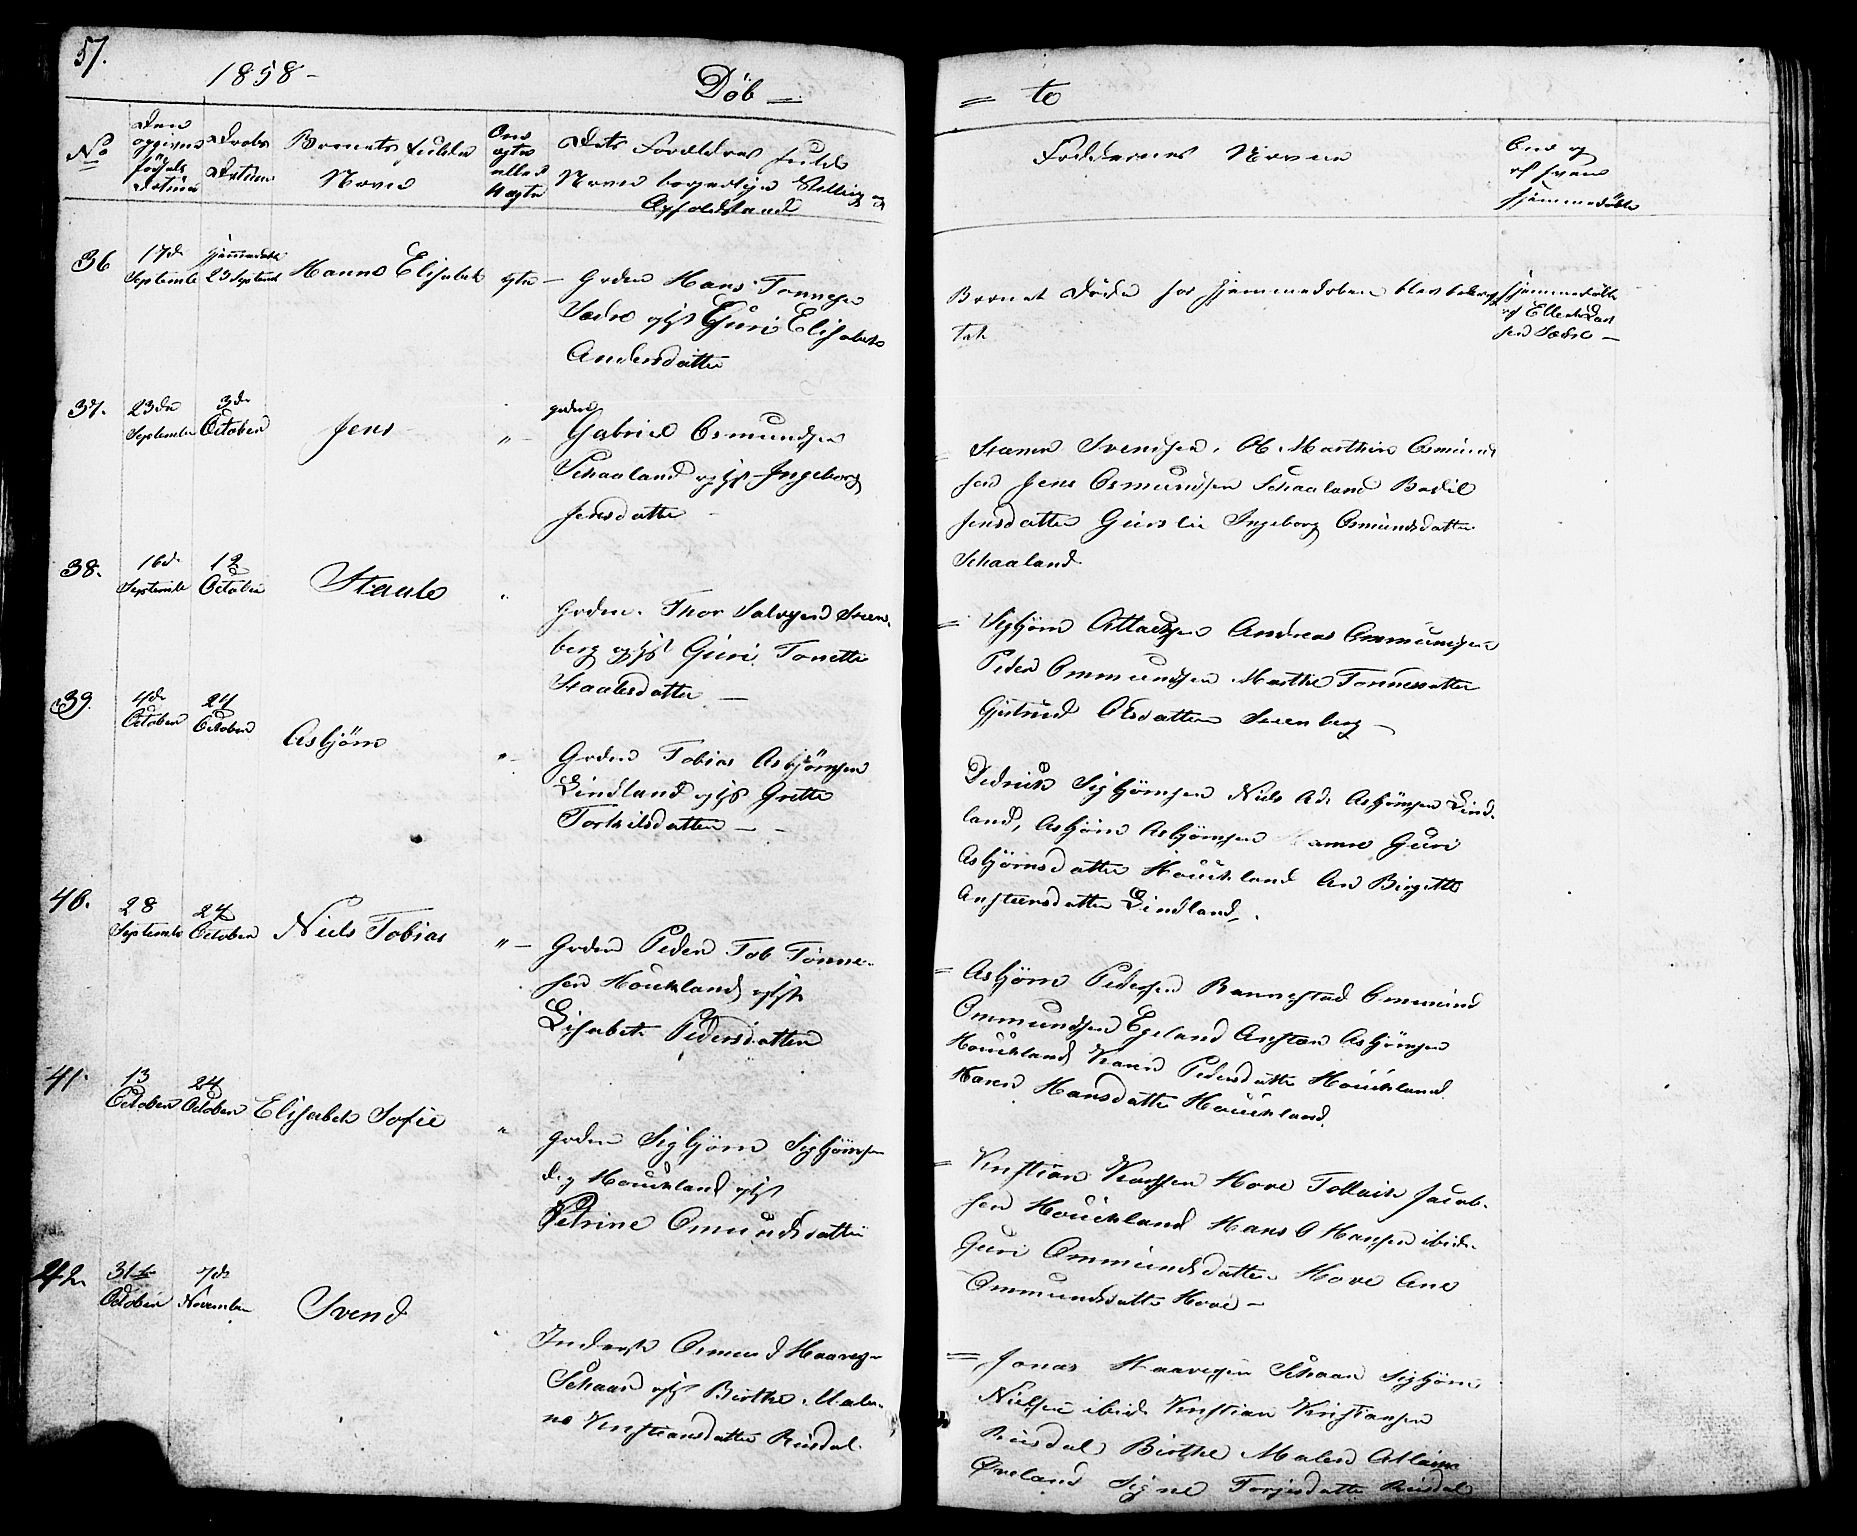 57.
1858 -
Döb =
= te
No
Den opgivne Fødsels Datum
Daabs Datum
Barnets fulde Navn
Om ægte eller Uægte
Dets Forældres fulde
Navn borgerlige Stilling og
Opholdsted
Faddernes Navne
Om og
af hvem
hjemmedöbte
36
17de September
hjemmedøbt 23 September
Hanne Elisabet
ægte -
Grdm Hans Tønnesen
Sædre og Hst Guri Elisabet
Andersdatter
Barnet Døde før hjemmedaaben blev bekræf
tet
hjemmedöbte
af Ellert Lar
sen Sædre -
37.
23de September
3de October
Jens
"
grdm
Gabriel Osmundsen
Schaaland og Hst Ingeborg
Jensdatter
= Svensen, Ol. Marthin Osmund
sen Jens Osmundsen Schaaland Bodil
Jensdatter Ingeborg Osmundsdatter
Schaaland
38.
16de September
12 October
Staale
"
Grdm. Thor Salvesen Steen,
berg og Hst Guri Tonette
Staalesdatter -
= Sigbjörn Atlaksen Andreas Ommundsen
Peder Ommundsen Marthe Tonnesdatter
Gjertrud Olsdatter Steenberg -
39.
4de October
24 October
Asbjörn
"
Grdm Tobias Asbjörnsen
Lindland og Hst Grethe
Torkilsdatter -
Didrick Sigbjörnsen Niels Ad. Asbjörnsen Lind-
land, Asbjörn Asbjörnsen Hanne Guri
Asbjörnsdatter Houckland An Birgitte
Anstensdatter Lindland.
40.
28 September
24 October
Niels Tobias
" -
Grdm Peder Tob Tönne-
sen Houckland og Hst
Lisabet Pedersdatter
= Asbjörn Pedersen Rannestad Ommund
Ommundsen Egeland Ansten Asbjörnsen
Houckland Karen Pedersdatter Houckland
Karen Hansdatter Houckland.
41.
13 October
24 October
Elisabet Sofie
"
grdm Sigbjörn Sigbjörnsen
Houckland og Hst
Petrine Omundsdatter
= Kristian Hove Tollack Jacob-
sen Houckland Hans O Hansen ibid.
Guri Ommundsdatter Hove Ane
Ommundsdatter Hove -
42
31te October
7de November
Svend
Inderst Osmund Haaversen
Schaar og Hst Birthe Male-
ne Kristiansdatter Rusdal.
= Jonas Haaversen Schaar Sigbjörn
Nielsen ibid Kristian Kristiansen
Rusdal Birthe Malen
Öveland Signe Torjesdatter Rusdal